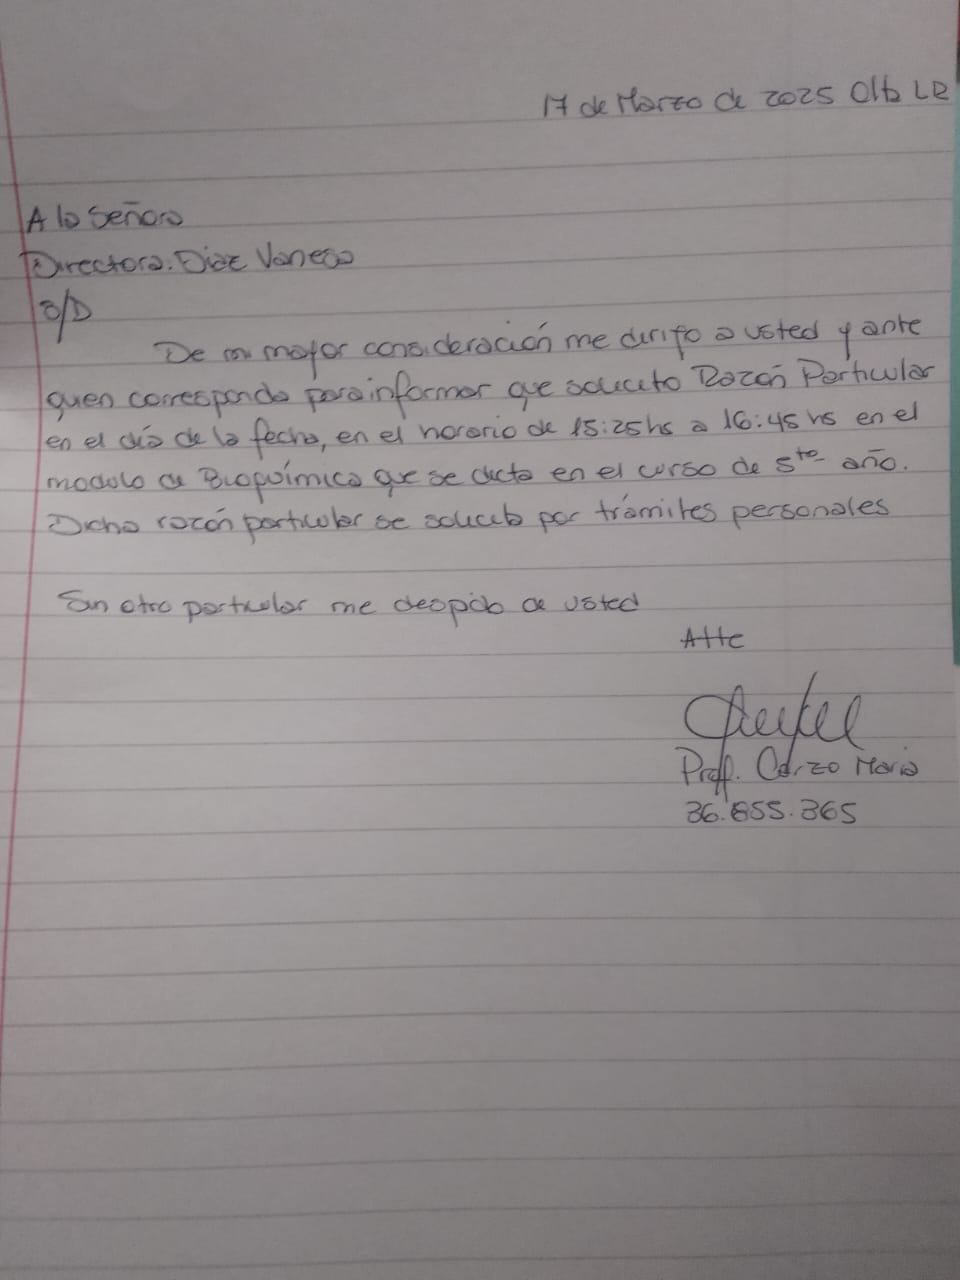 17 de Marzo de 2025 Olta LR
A la Señora
Directora. Diaz Vanesa
S/D
De mi mayor consideración me dirijo a usted y ante
quien corresponda para informar que solicito Razón Particular
en el día de la fecha, en el horario de 15:25hs a 16:45 hs en el
modulo de Bioquímica que se dicta en el curso de 5to año.
Dicha razón particular se solicita por trámites personales
Sin otro particular me despido de usted
Atte
Proff. Corzo Maria
36.855.365